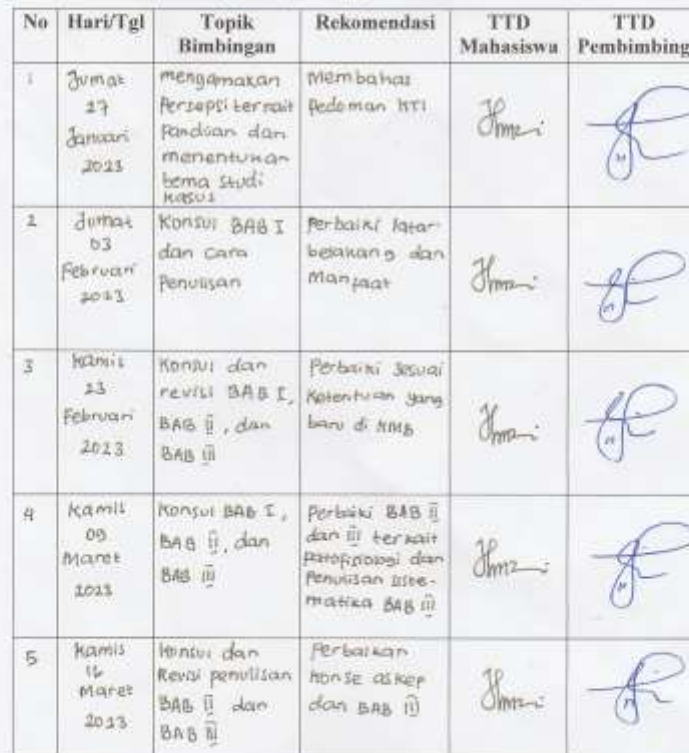 No Hari/Tgl Topik Bimbingan Rekomendasi TTD Mahasiswa TTD Pembimbing
1
Jumat
27
Januari
2023
mengamakan
Persepsi terkait
Panduan dan
menentukan
tema studi
kasus
Membahas
Pedoman KTI
2
Jumat
03
Februari
2023
Konsul BAB I
dan Cara
Penulisan
Perbaiki latar
belakang dan
Manfaat
3
Kamis
23
Februari
2023
Konsul dan
revisi BAB I,
BAB II, dan
BAB III
Perbaiki Sesuai
Ketentuan yang
baru di
4
Kamis
09
Maret
2023
Konsul BAB I,
BAB II, dan
BAB III
Perbaiki BAB II
dan III terkait
patofisiologi dan
Penulisan siste-
matika BAB III
5
Kamis
16
Maret
2023
Konsul dan
Revisi penulisan
BAB II dan
BAB III
Perbaikan
Konse askep
dan BAB III